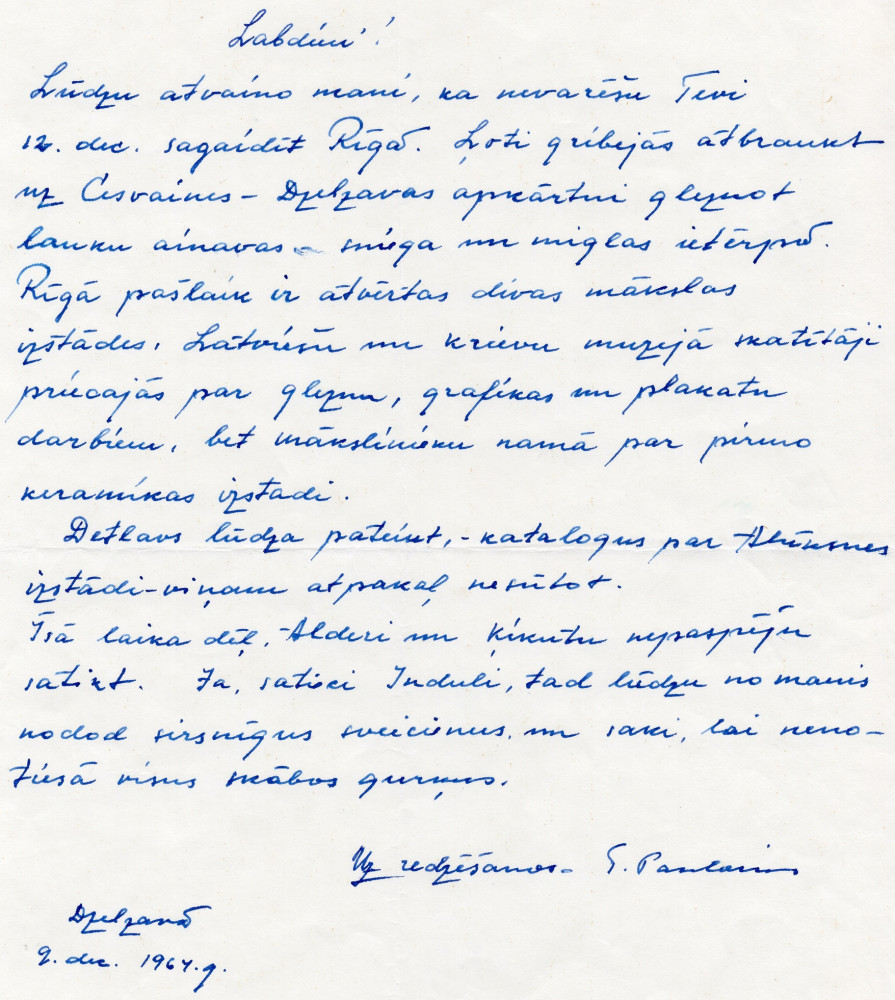 Labdien!
Lūdzu atvaino mani, ka nevarēšu Tevi
12. dec. sagaidīt Rīgā. Ļoti gribējās atbraukt
uz Cesvaines – Dzelzavas apkārtni gleznot
lauku ainavas – sniega un miglas ietērpā.
Rīgā pašlaik ir atvērtas divas mākslas
izstādes. Latviešu un krievu muzejā skatītāji
priecajās par gleznu, grafikas un plakatu
darbiem, bet mākslinieku namā par pirmo
keramikas izstadi.
Detlavs lūdza pateikt, - katalogus par Alūksnes
izstādi - viņam atpakaļ nesūtot.
Īsā laika dēļ, Alderi un Ķikutu nepaspēju
satikt. Ja, satieci Induli, tad lūdzu no manis
nodod sirsnīgus sveicienus un saki, lai neno-
tiesā visus skābos gurķus.
Uz redzēšanos –
Dzelzavā
9. dec. 1964. g.